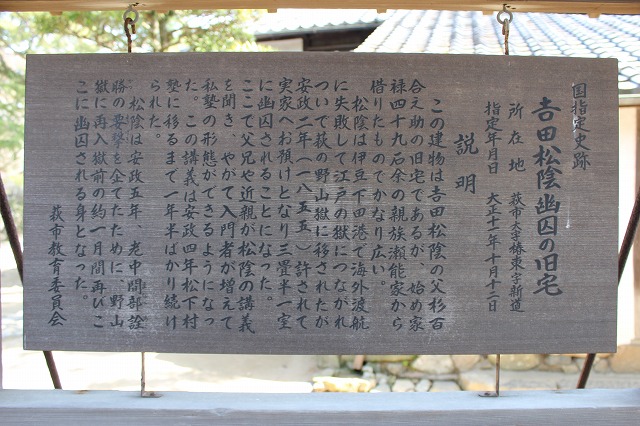 国指定史跡
吉田松陰幽囚の旧宅
所在地　萩市大字椿東字新道
指定年月日　大正十一年十月十二日
説明
この建物は吉田松陰の父杉百
合之助の旧宅であるが、始め家
禄四十九石余の親族瀬能家から
借りたものでかなり広い。
松陰は伊豆下田港で海外渡航
に失敗して江戸の獄につながれ
ついで萩の野山獄に移されたが
安政二年（一八五五）許されて
実家へお預けとなり三畳半一室
に幽囚されることになった。
ここで父兄や近親が松陰の講義
を聞き、やがて入門者が増えて
私塾の形態ができるようになっ
た。この講義は安政四年松下村
塾に移るまで一年半ばかり続け
られた。
松陰は安政五年　老中間部詮
勝の要撃を企てたために、野山
獄に再入獄前の約一月間再びこ
こに幽囚される身となった。
萩市教育委員会